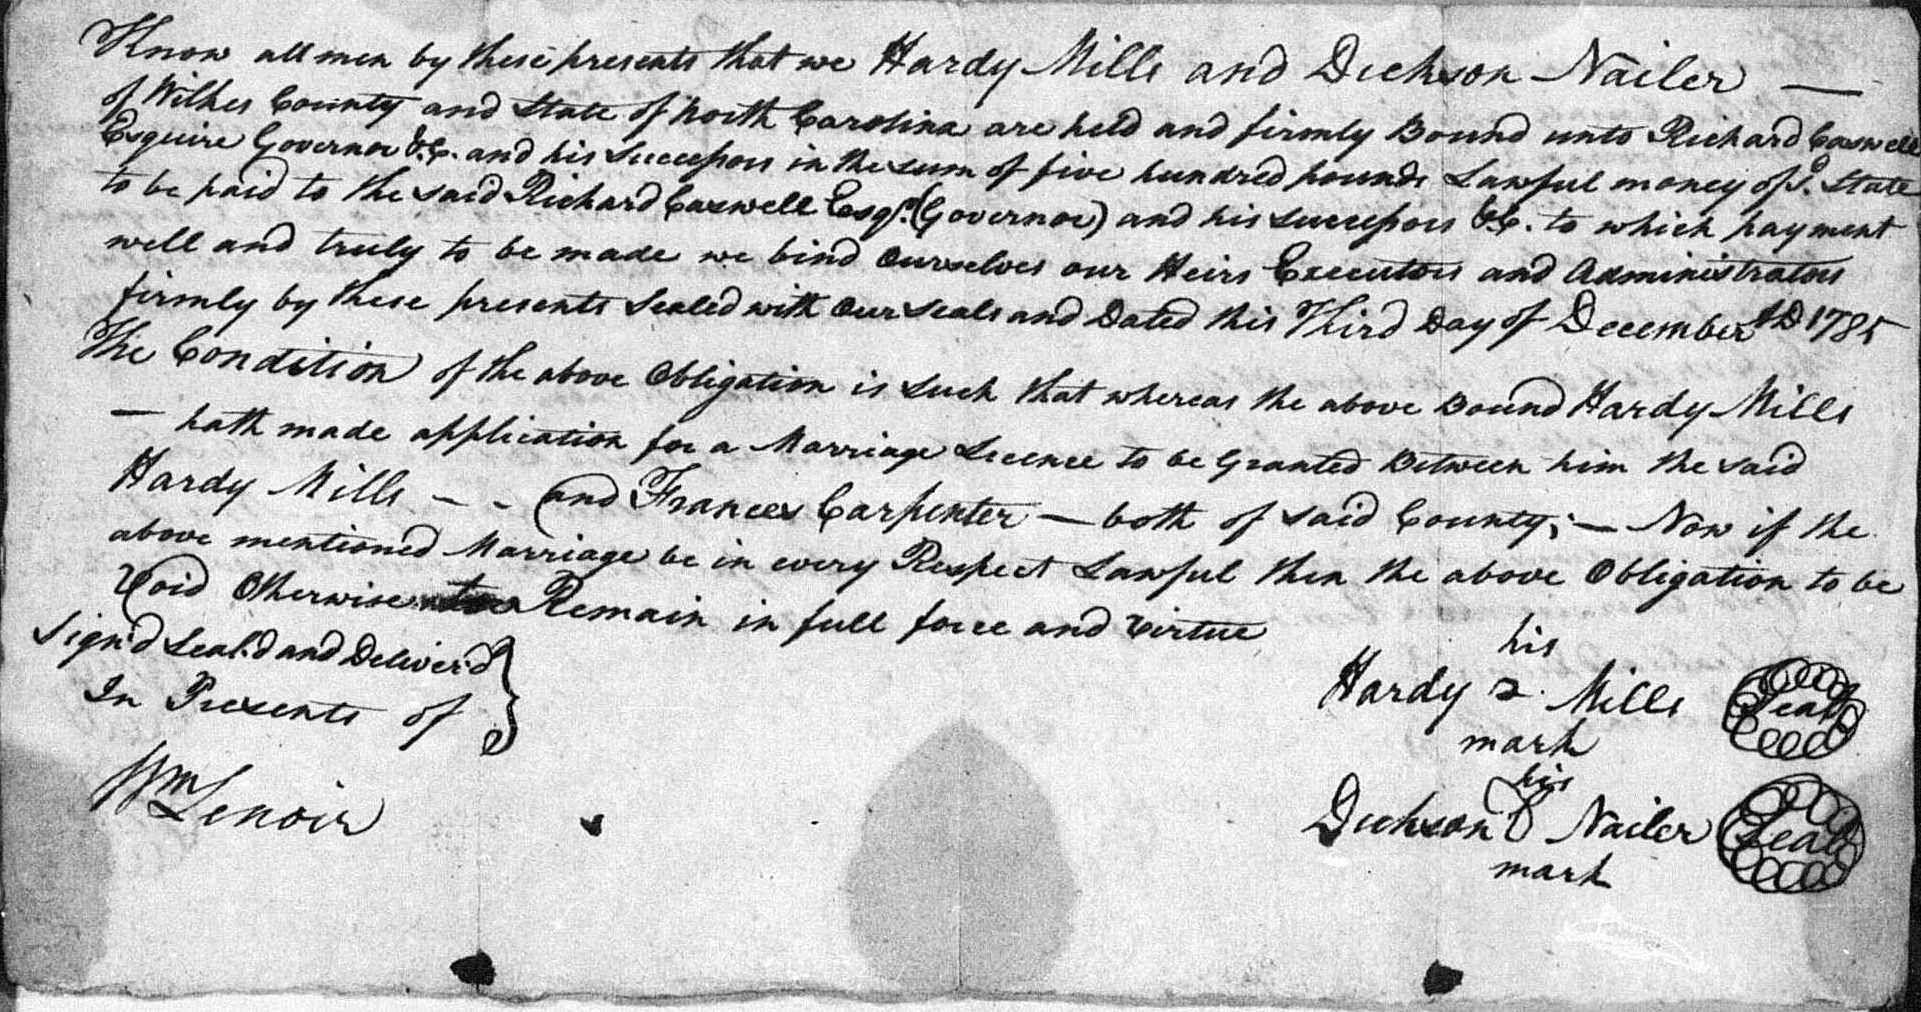 Know all men by these presents that we Hardy Mills and Dickson Nailer —
of Wilkes County and State of North Carolina are held and firmly Bound unto Richard Caswell
Esquire Governor &C. and his Successors in the sum of five hundred pounds Lawful money of sd. State
to be paid to the said Richard Caswell Esqr. (Governor) and his successors &C. to which payment
well and truly to be made we bind Ourselves our Heirs Executors and Administrators
firmly by these presents Sealed with Our Seals and Dated this Third Day of December AD 1785
The Condition of the above Obligation is Such that whereas the above Bound Hardy Mills
— hath made application for a Marriage Licence to be Granted Between him the said
Hardy Mills — - and Frances Carpenter — both of said County; — Now if the
above mentioned Marriage be in every Respect Lawful then the above Obligation to be
Void Otherwise to Remain in full force and Virtue
Sign'd Seal'd and Deliver'd }
In Presents of
Wm Lenoir
his
Hardy 2. Mills Seal
mark
his
Dickson Nailer Seal
mark